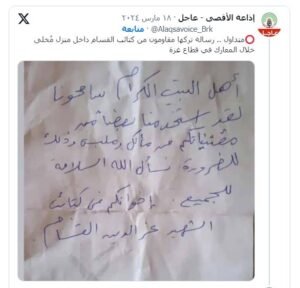 إذاعة الأقصى - عاجل · ١٨ مارس ٢٠٢٤
@Alaqsavoice_Brk · متابعة
عاجل
متداول .. رسالة تركها مقاومون من كتائب القسام داخل منزل مُخلى
خلال المعارك في قطاع غزة
أهل البيت الكرام سامحونا
لقد استخدمنا بعضا من
مقتنياتكم من مأكل وملبس وذلك
للضرورة نسأل الله السلامة
للجميع. إخوانكم في كتائب
الشهيد عز الدين القسام.